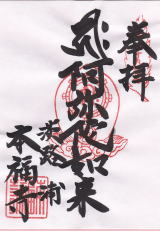 奉拝
阿弥陀如来
淡路 浦
本福寺